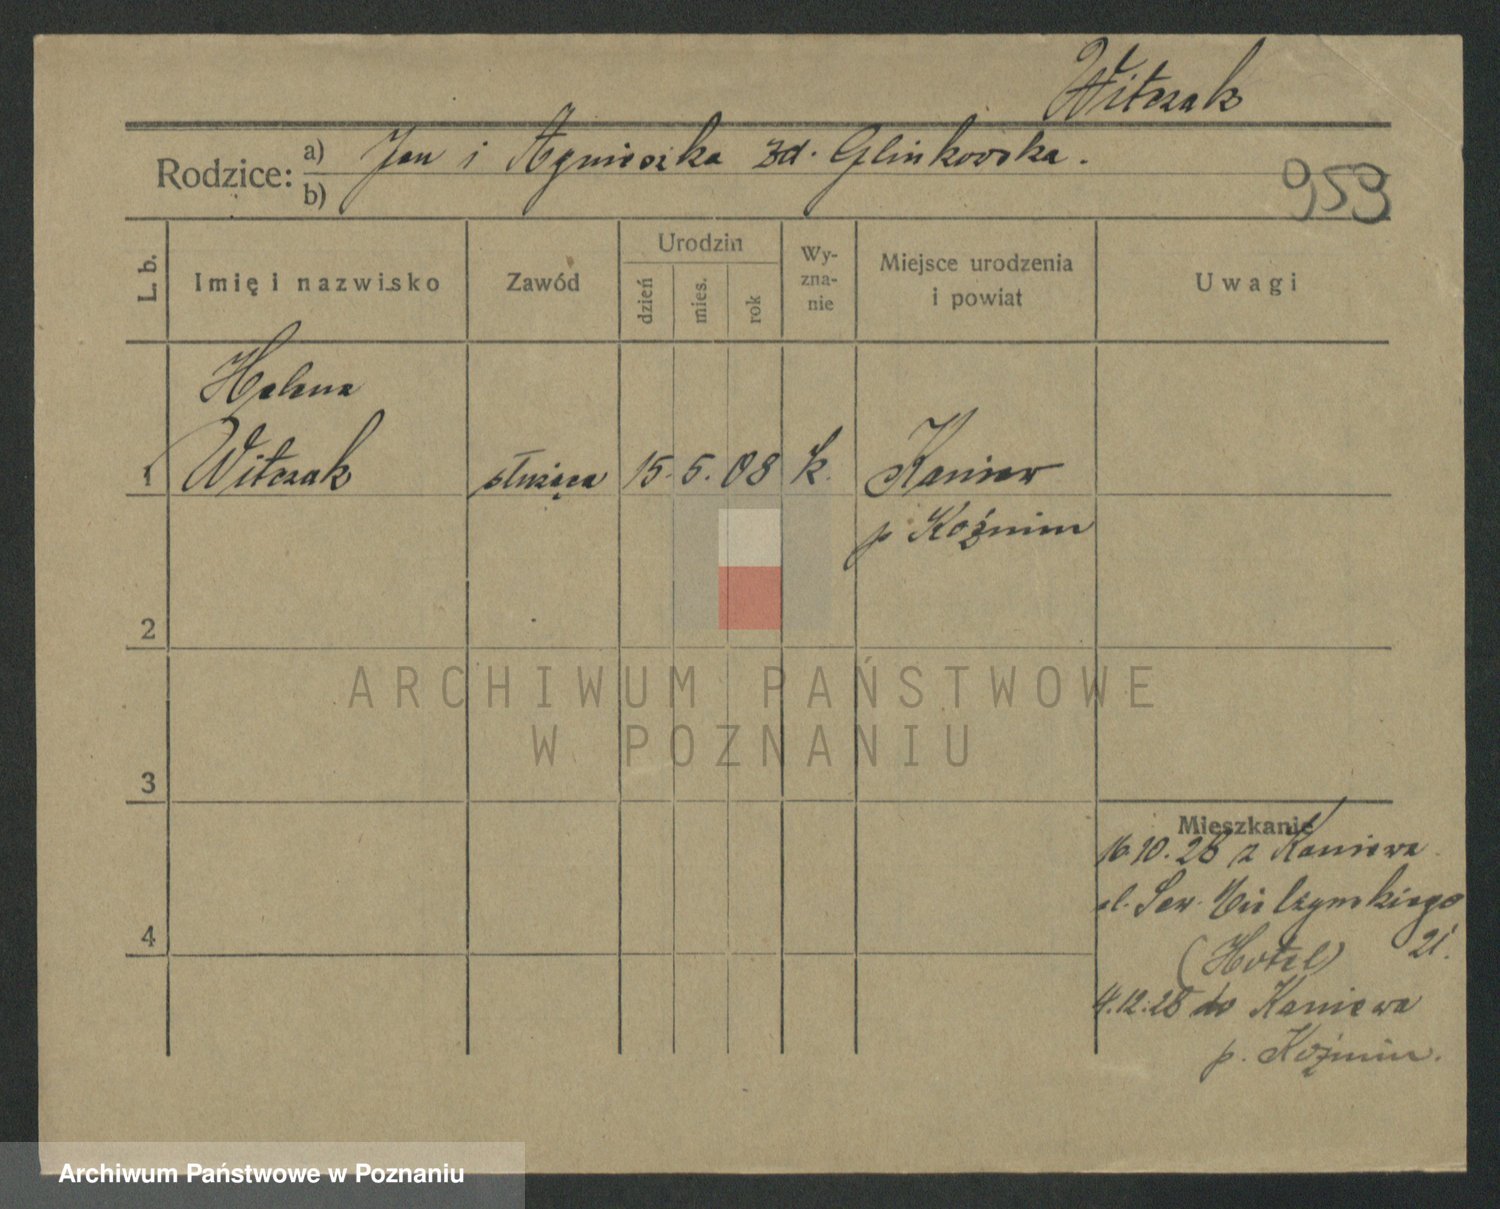 Witczak
Rodzice: a) Jan i Agnieszka zd. Glinkowska.
b)
959
L. b.
Imię i nazwisko
Zawód
Urodzin
dzień
mies.
rok
Wy-
zna-
nie
Miejsce urodzenia
i powiat
Uwagi
Helena
1 Witczak służąca 15. 5. 08 k. Kaniew
p Koźmin
2
ARCHIWUM PAŃSTWOWE
W POZNANIU
3
Mieszkanie
16.10.28 z Kaniewa
ul. Sew. Mielżyńskiego
21.
(Hotel)
4
4.12.28 do Kaniewa
p. Koźmin.
Archiwum Państwowe w Poznaniu